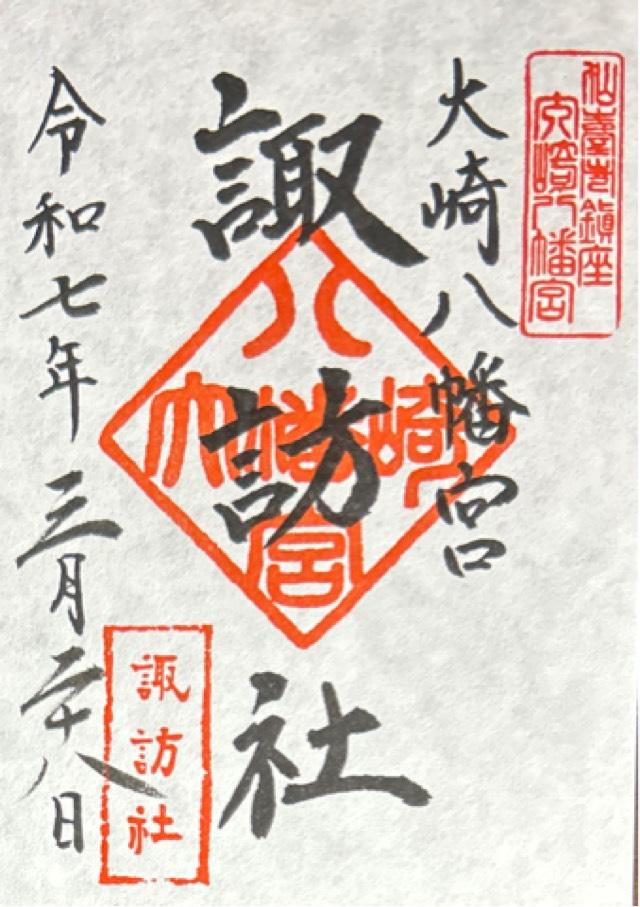 仙臺市鎮座
大崎八幡宮
大崎八幡宮
諏訪社
大崎八幡宮
諏訪社
令和七年三月二十八日